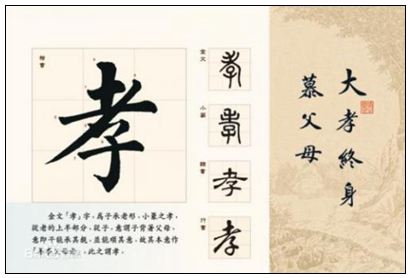 楷書
孝
金文
孝
小篆
孝
隸書
孝
行書
孝
金文「孝」字，為子承老形，小篆之孝，
從老的上半部分，從子，意謂子背著父母，
意即子能承其親，並能順其意，故其本意作
此之謂孝。
大孝終身
慕父母